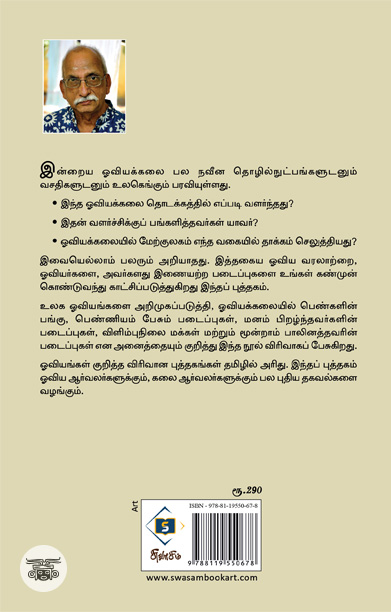 இன்றைய ஓவியக்கலை பல நவீன தொழில்நுட்பங்களுடனும்
வசதிகளுடனும் உலகெங்கும் பரவியுள்ளது.
• இந்த ஓவியக்கலை தொடக்கத்தில் எப்படி வளர்ந்தது?
• இதன் வளர்ச்சிக்குப் பங்களித்தவர்கள் யாவர்?
• ஓவியக்கலையில் மேற்குலகம் எந்த வகையில் தாக்கம் செலுத்தியது?
இவையெல்லாம் பலரும் அறியாதது. இத்தகைய ஓவிய வரலாற்றை,
ஓவியர்களை, அவர்களது இணையற்ற படைப்புகளை உங்கள் கண்முன்
கொண்டுவந்து காட்சிப்படுத்துகிறது இந்தப் புத்தகம்.
உலக ஓவியங்களை அறிமுகப்படுத்தி, ஓவியக்கலையில் பெண்களின்
பங்கு, பெண்ணியம் பேசும் படைப்புகள், மனம் பிறழ்ந்தவர்களின்
படைப்புகள், விளிம்புநிலை மக்கள் மற்றும் மூன்றாம் பாலினத்தவரின்
படைப்புகள் என அனைத்தையும் குறித்து இந்த நூல் விரிவாகப் பேசுகிறது.
ஓவியங்கள் குறித்த விரிவான புத்தகங்கள் தமிழில் அரிது. இந்தப் புத்தகம்
ஓவிய ஆர்வலர்களுக்கும், கலை ஆர்வலர்களுக்கும் பல புதிய தகவல்களை
வழங்கும்.
ரூ.290
Art
ISBN - 978-81-19550-67-8
S
சுவாசம்
9 788119 550678
www.swasambookart.com